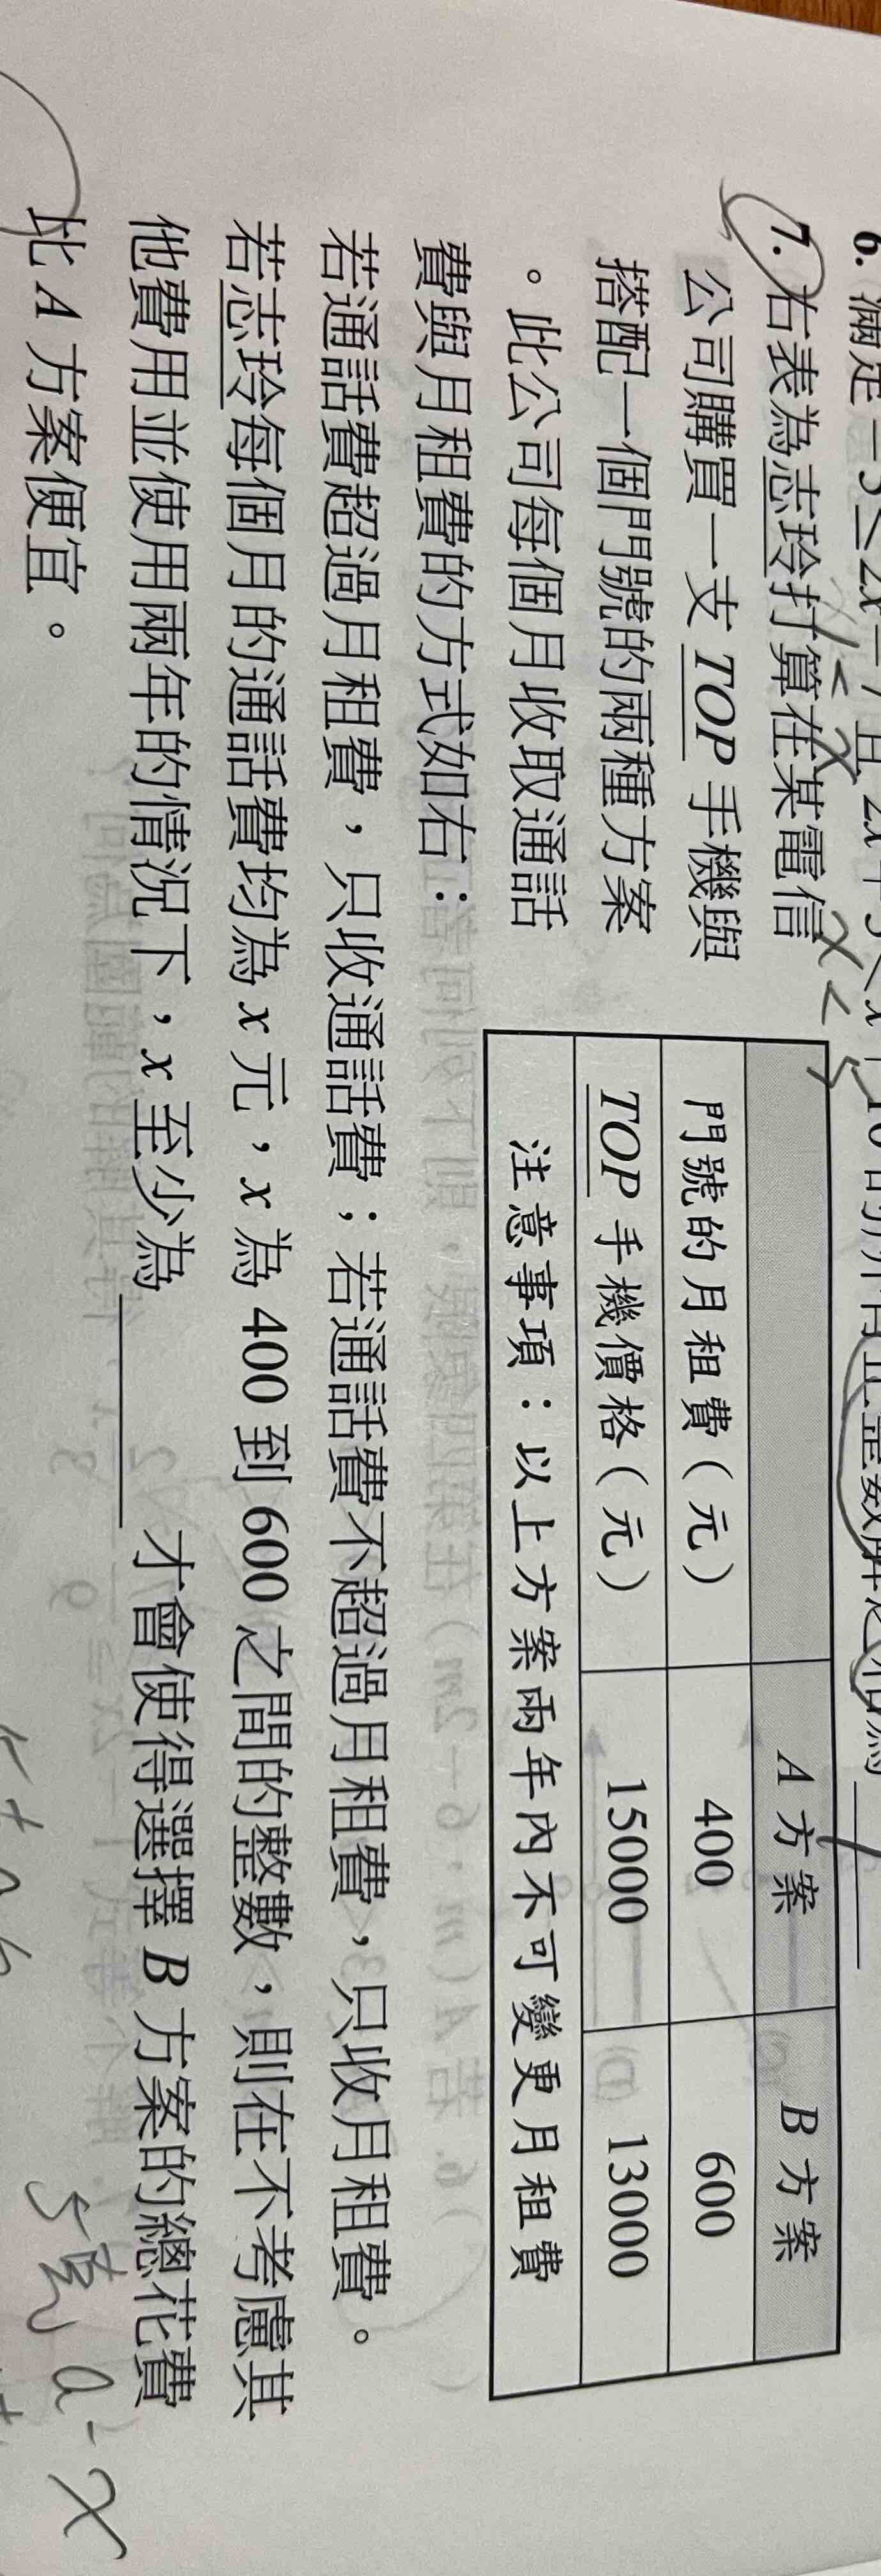 6. 滿足 -5≤2x-7 且 2x+3<x+10 的所有正整數解之和為
1<x x<
7. 右表為志玲打算在某電信
公司購買一支 TOP 手機與
搭配一個門號的兩種方案
。此公司每個月收取通話
費與月租費的方式如右：
A 方案 B 方案
門號的月租費（元） 400 600
TOP 手機價格（元） 15000 13000
注意事項：以上方案兩年內不可變更月租費
若通話費超過月租費，只收通話費；若通話費不超過月租費，只收月租費。
若志玲每個月的通話費均為 x 元，x 為 400 到 600 之間的整數，則在不考慮其
他費用並使用兩年的情況下，x 至少為 才會使得選擇 B 方案的總花費
比 A 方案便宜。
a-x